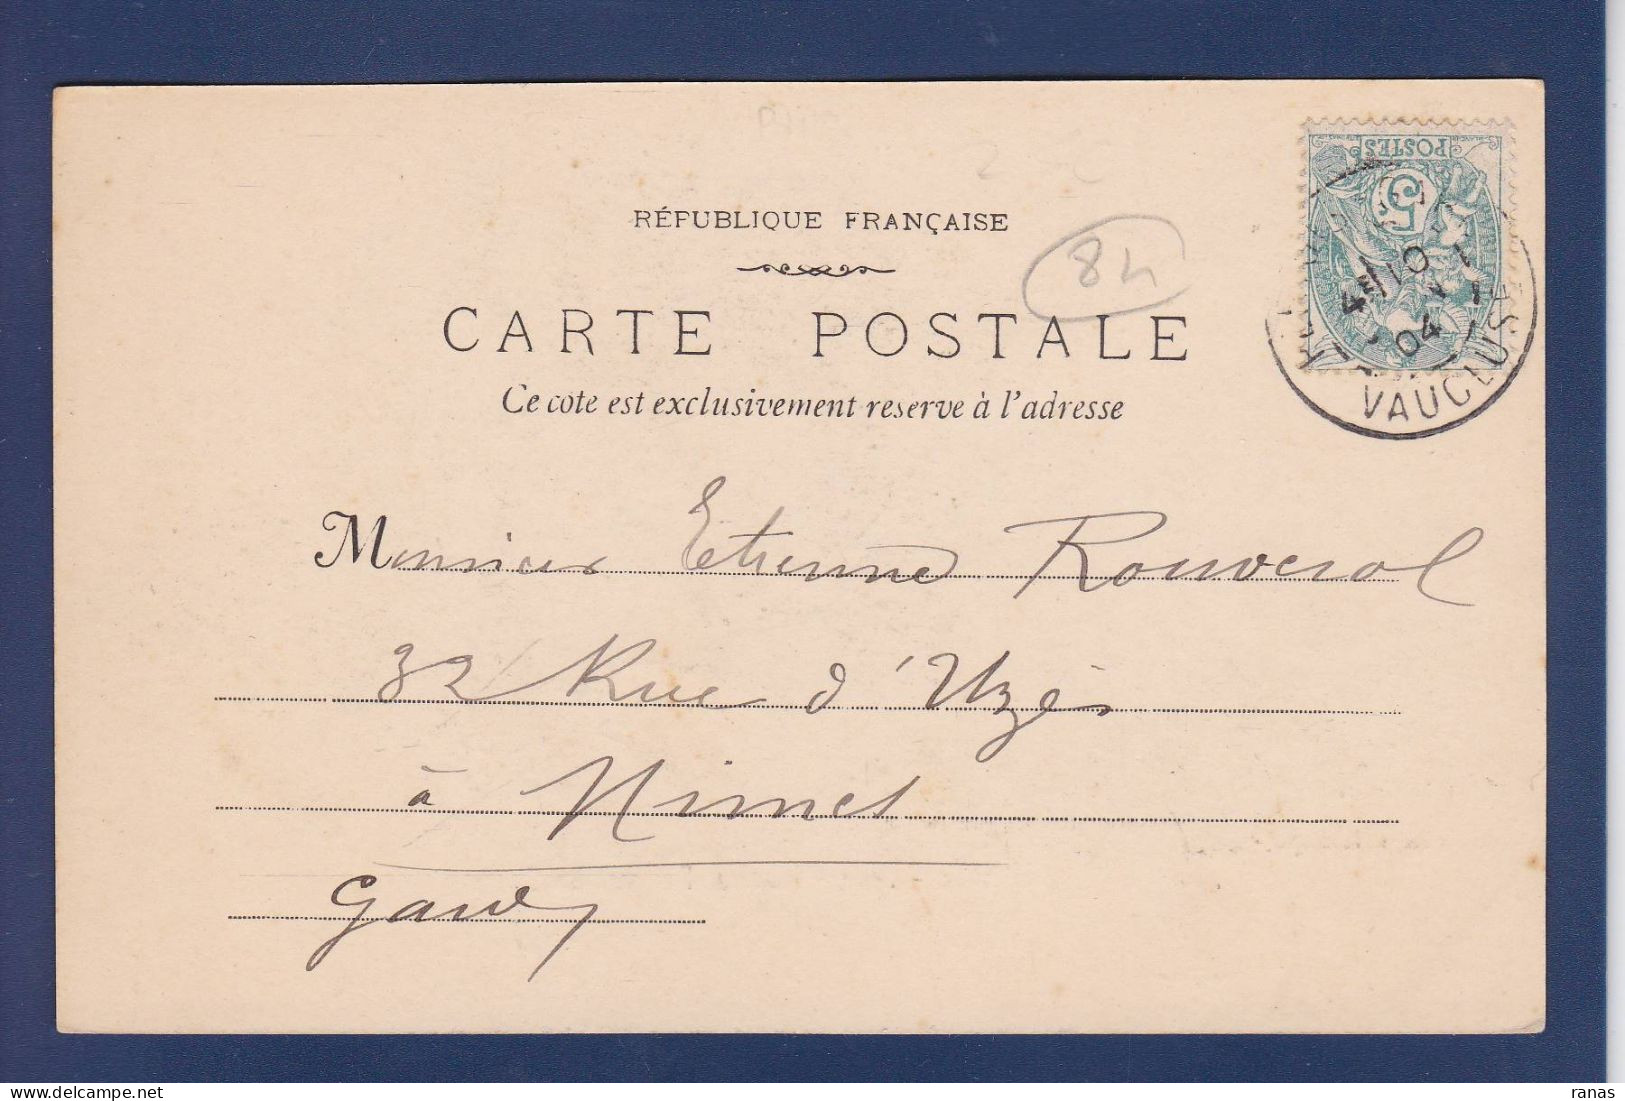 RÉPUBLIQUE FRANÇAISE
84
CARTE POSTALE
Ce cote est exclusivement reserve à l'adresse
POSTES
5
4E/10
04
VAUCLUSE
Monsieur Etienne Rouverol
32 Rue d'Uzès
à Nimes
Gard
ranas